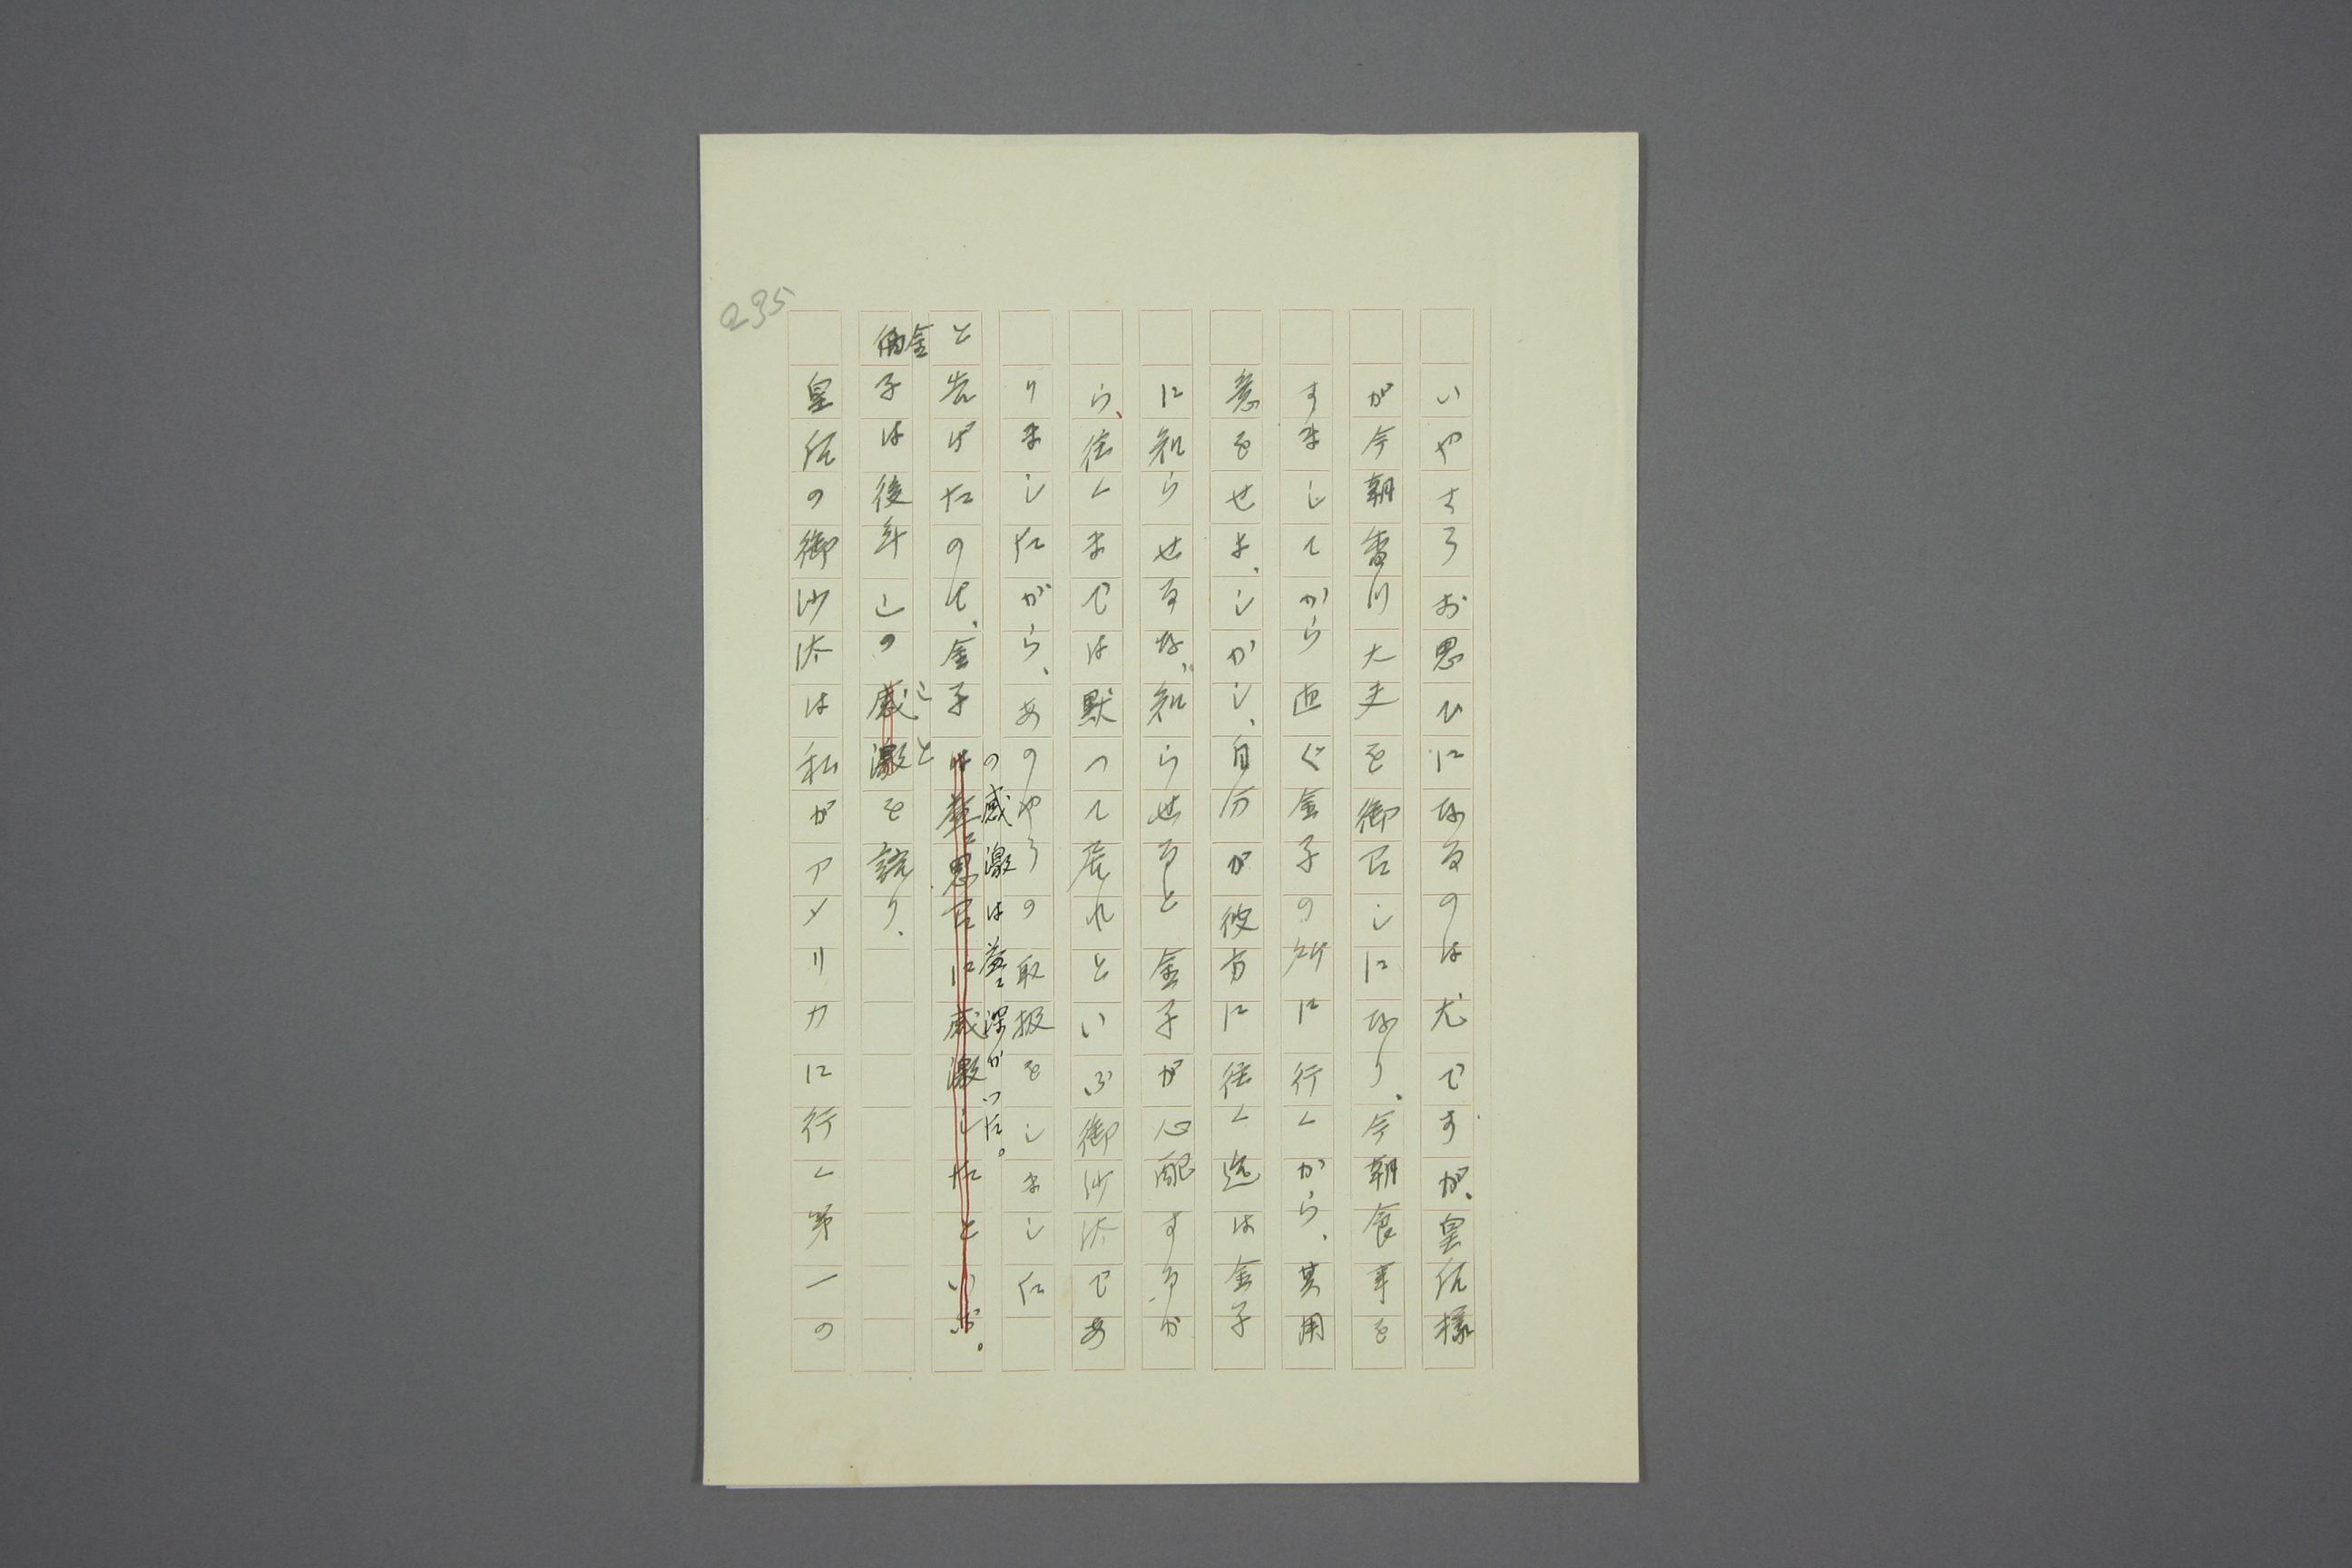 いやすうお思ひになるのは尤ですが、皇后様
が今朝香川大夫を御召しになり、今朝食事を
すましてから直ぐ金子の所に行くから、其用
意をせよ、しかし、自分が彼方に往く迄は金子
に知らせるな、知らせると金子が心配するか
ら、往くまでは默つて居れといふ御沙汰であ
りましたがら、あのやうの取扱をしました
と告げたので、金子は益々恩召に感激したといふ。
の感激は益々深かつた。
金子は後年このことを語り、
感激
皇后の御沙汰は私がアメリカに行く第一の
235